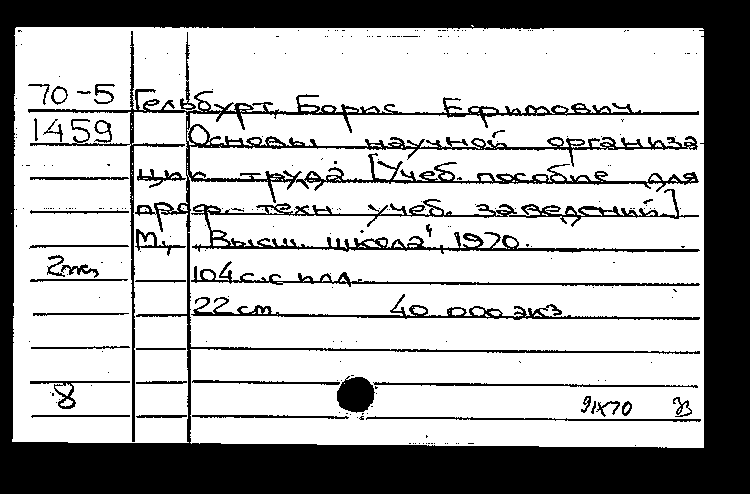 70-5 Гельбурт, Борис Ефимович.
1459 Основы научной организа
ции труда. [Учеб. пособие для
проф.-техн учеб. заведений.]
М., „Высш. школа", 1970.
104 с. с илл.
22 см. 40 000 экз.
8
9IX70